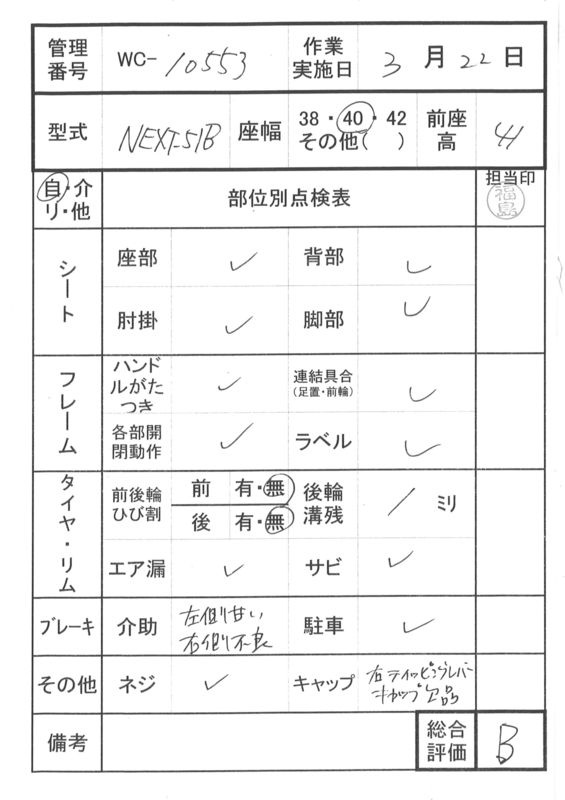 管理番号 WC-10553 作業実施日 3月22日
型式 NEXT-51B 座幅 38・40・42 その他( ) 前座高 41
自・介・リ・他 部位別点検表 担当印 福島
シート 座部 ✓ 背部 ✓
肘掛 ✓ 脚部 ✓
フレーム ハンドルがたつき ✓ 連結具合(足置・前輪) ✓
各部開閉動作 ✓ ラベル ✓
タイヤ・リム 前後輪ひび割 前 有・無 後輪溝残 / ミリ
後 有・無
エア漏 ✓ サビ ✓
ブレーキ 介助 左側甘い 右側不良 駐車 ✓
その他 ネジ ✓ キャップ 右ティッピングレバーキャップ欠品
備考 総合評価 B